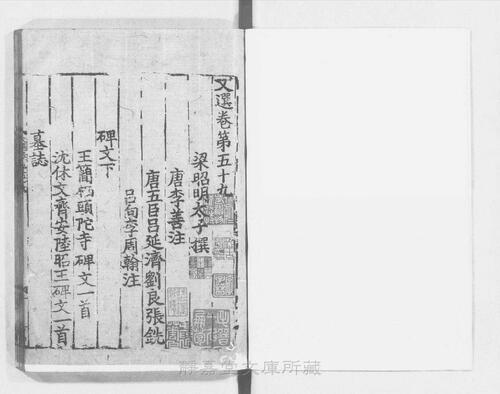 文選卷第五十九
梁昭明太子撰
唐李善注
唐五臣呂延濟劉良張銑
呂向李周翰注
碑文下
王簡栖頭陀寺碑文一首
沈休文齊安陸昭王碑文一首
墓誌
靜嘉堂文庫所藏